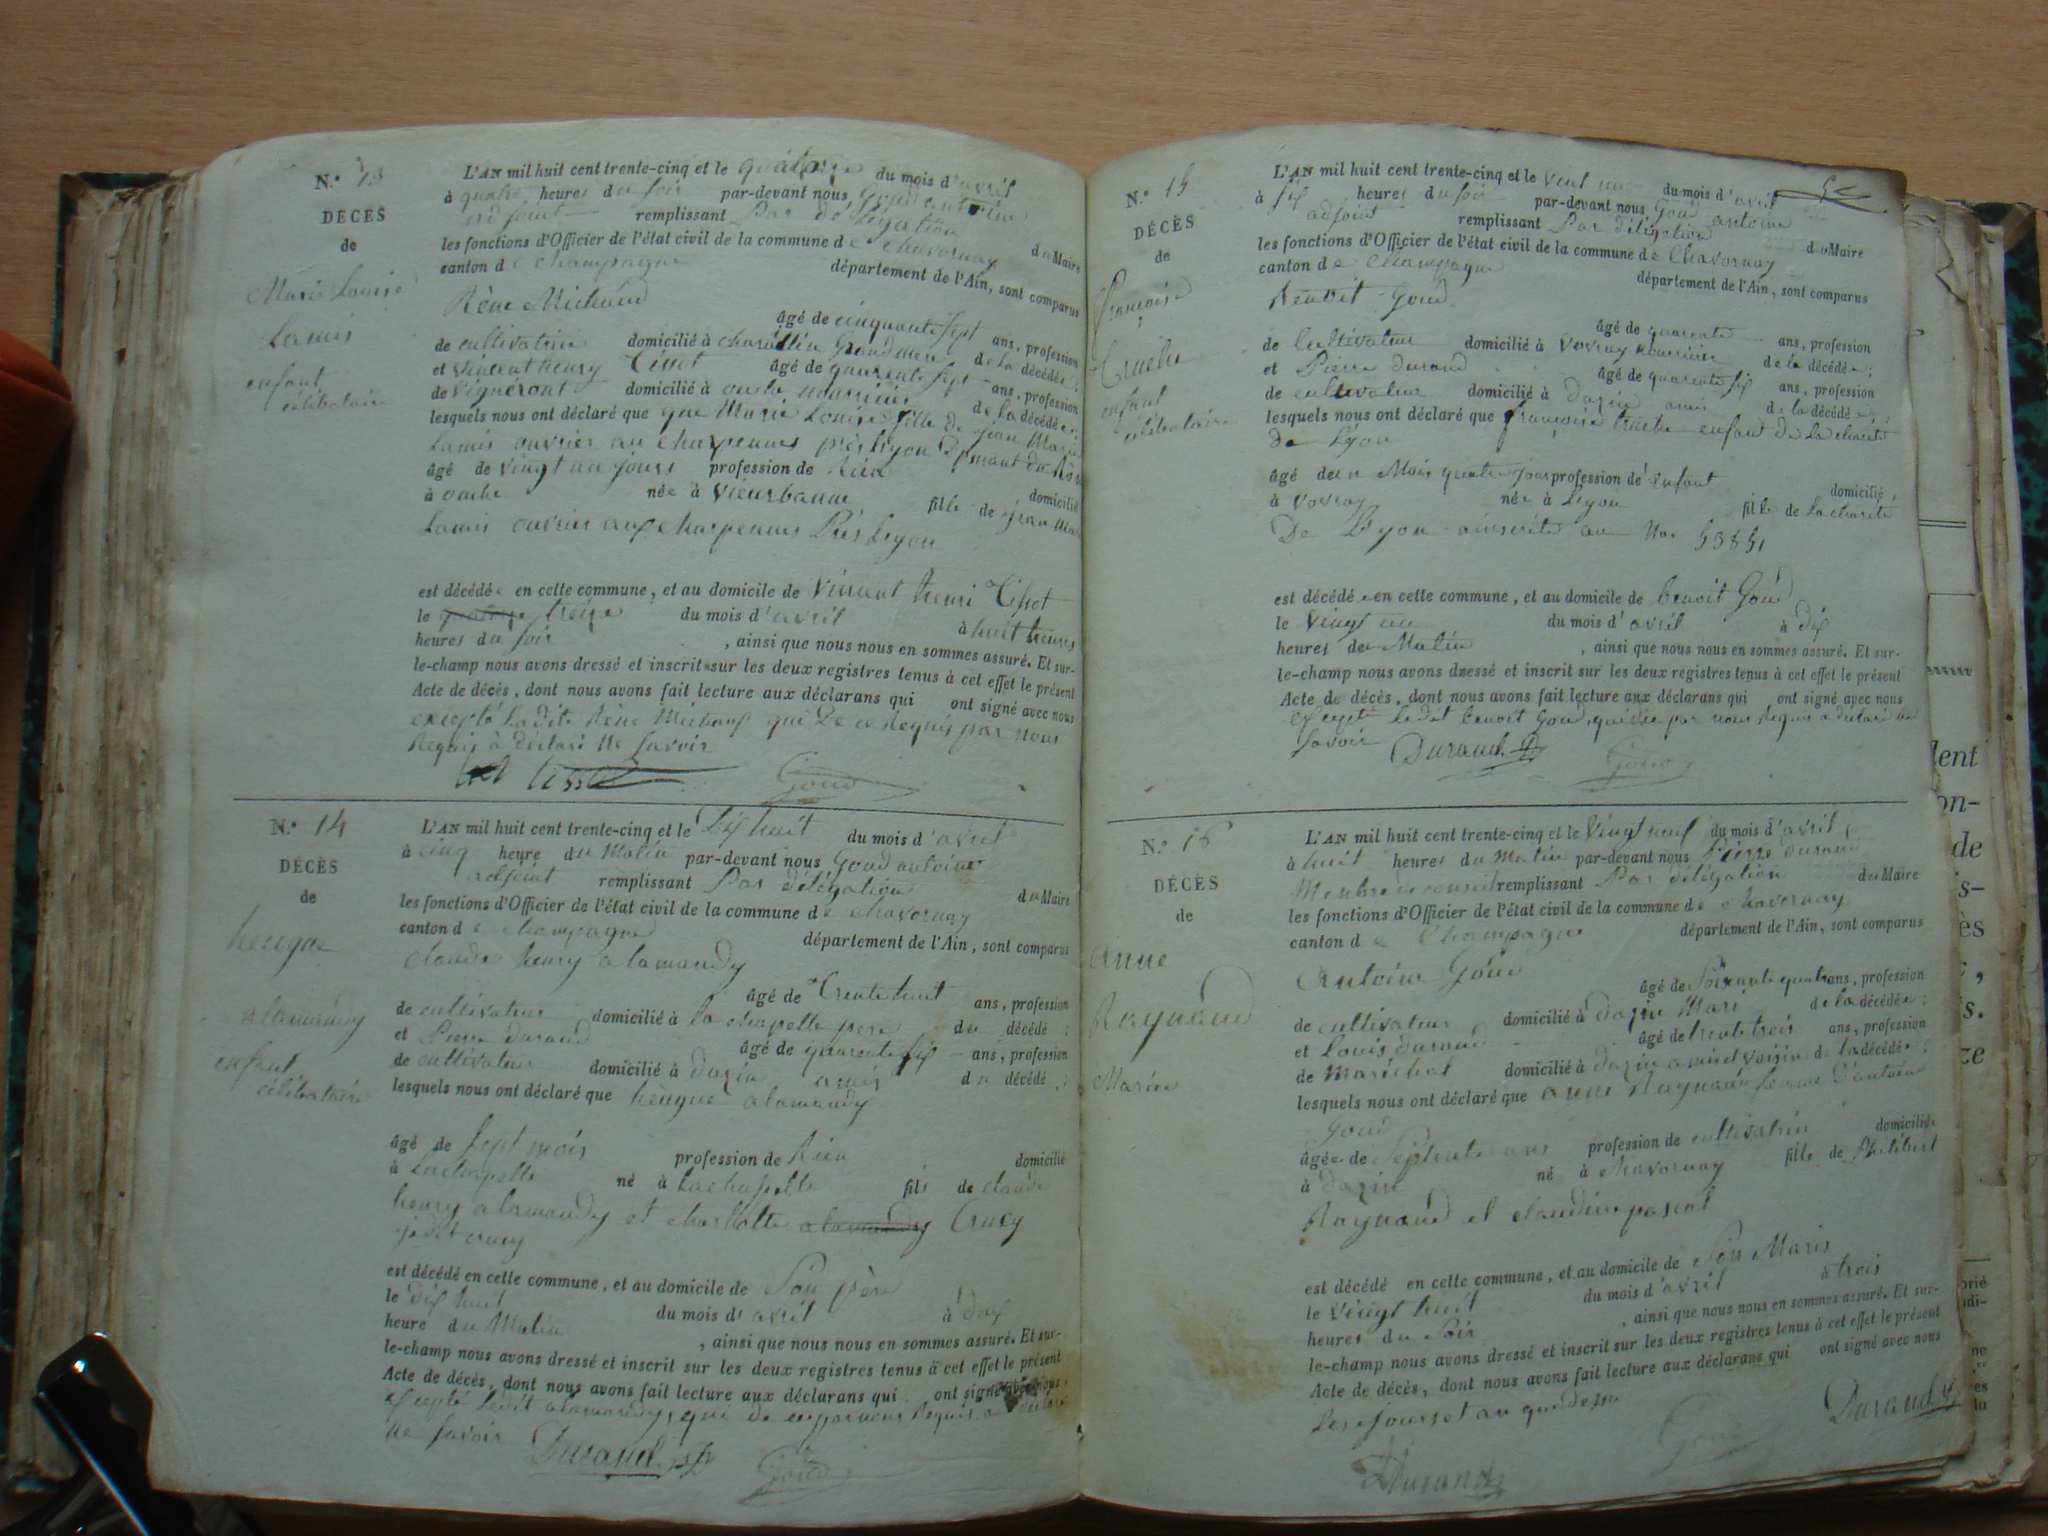 N.º 13
DÉCÈS
de
Marie Louise
Lamis
enfant
célibataire
L'AN mil huit cent trente-cinq et le quatorze du mois d'avril
à quatre heures du soir par-devant nous Goud antoine
adjoint remplissant Par délégation
les fonctions d'Officier de l'état civil de la commune de chavornay du Maire
canton de champagne département de l'Ain, sont comparus
Rène Michaud
âgé de cinquante sept ans, profession
de cultivatrice domicilié à Grand mere de la décédée;
et vincent henry Tissot âgé de quarente sept ans, profession
de vigneront domicilié à ouche de la décédée;
lesquels nous ont déclaré que que Marie Louise fille de jean Marie
Lamis ouvrier au charpennes près Lyon
âgé de vingt un jours profession de Rien domicilié
à ouche née à vieurbanne fille de jean Marie
Lamis ouvrier aux charpennes Près Lyon
est décédée en cette commune, et au domicile de Vincent henri Tissot
le treize du mois d'avril à huit heures
heures du soir , ainsi que nous nous en sommes assuré. Et sur-
le-champ nous avons dressé et inscrit sur les deux registres tenus à cet effet le présent
Acte de décès, dont nous avons fait lecture aux déclarans qui ont signé avec nous
excepté Ladite Rène Michaud qui De ce Requis par nous
Requis à déclaré Ne Savoir
tissot Goud
N.º 14
DÉCÈS
de
heugne
alamandy
enfant
célibataire
L'AN mil huit cent trente-cinq et le Dix huit du mois d'avril
à cinq heure du Matin par-devant nous Goud antoine
adjoint remplissant Par délégation du Maire
les fonctions d'Officier de l'état civil de la commune de chavornay
canton de champagne département de l'Ain, sont comparus
claude henry alamandy
âgé de Trente huit ans, profession
de cultivateur domicilié à la chapelle pere du décédé;
et Pierre durand âgé de quarente six ans, profession
de cultivateur domicilié à dazin amis du décédé;
lesquels nous ont déclaré que heugne alamandy
âgé de sept mois profession de Rien domicilié
à Lachapelle né à Lachapelle fils de claude
henry alamandy et charllotte alamandy Crucy
crucy
est décédé en cette commune, et au domicile de Son père
le dix huit du mois d'avril à dix
heure du Matin , ainsi que nous nous en sommes assuré. Et sur-
le-champ nous avons dressé et inscrit sur les deux registres tenus à cet effet le présent
Acte de décès, dont nous avons fait lecture aux déclarans qui ont signé avec nous
excepté Ledit alamandy, qui de ce par nous Requis a déclaré
Ne Savoir Durand Goud
N.º 15
DÉCÈS
de
françoise
Truche
enfant
célibataire
L'AN mil huit cent trente-cinq et le vent un du mois d'avril
à six heures du soir par-devant nous Goud antoine
adjoint remplissant Par délégation du Maire
les fonctions d'Officier de l'état civil de la commune de Chavornay
canton de champagne département de l'Ain, sont comparus
Benoit Goud
âgé de quarente ans, profession
de Cultivateur domicilié à vovray nourricier de la décédée;
et Pierre durand âgé de quarente six ans, profession
de cultivateur domicilié à dazin amis de la décédée;
lesquels nous ont déclaré que françoise truche enfant de La charité
de Lyon
âgé de un Mois quatre jours profession de enfant domicilié,
à vovray née à Lyon fille de La charité
De Lyon ainscrite au No. 53851
est décédée en cette commune, et au domicile de benoit Goud
le vingt un du mois d'avril à dix
heures du Matin , ainsi que nous nous en sommes assuré. Et sur-
le-champ nous avons dressé et inscrit sur les deux registres tenus à cet effet le présent
Acte de décès, dont nous avons fait lecture aux déclarans qui ont signé avec nous
excepté ledit benoit Goud, par nous Requis a déclaré ne
Savoir Durand Goud
N.º 16
DÉCÈS
de
Anne
Raynaud
Mariée
L'AN mil huit cent trente-cinq et le vingt neuf du mois d'avril
à huit heures du Matin par-devant nous Pierre durand
Menbre de conseil remplissant Par délégation du Maire
les fonctions d'Officier de l'état civil de la commune de chavornay
canton de Champagne département de l'Ain, sont comparus
Antoine Goud
âgé de Soixante quatre ans, profession
de cultivateur domicilié à dazin Mari de la décédée;
et Louis durand âgé de trente trois ans, profession
de Maréchal domicilié à dazin ami et voisin de la décédée;
lesquels nous ont déclaré que anne Raynaud femme D'antoine
Goud
âgée de Septente ans profession de cultivatrice domiciliée
à dazin né à chavornay fille de Philibert
Raynaud et claudine pascal
est décédé en cette commune, et au domicile de Son Maris
le vingt huit du mois d'avril à trois
heures du Soir , ainsi que nous nous en sommes assuré. Et sur-
le-champ nous avons dressé et inscrit sur les deux registres tenus à cet effet le présent
Acte de décès, dont nous avons fait lecture aux déclarans qui ont signé avec nous
Les jours et an que dessus
Goud Durand
Durand